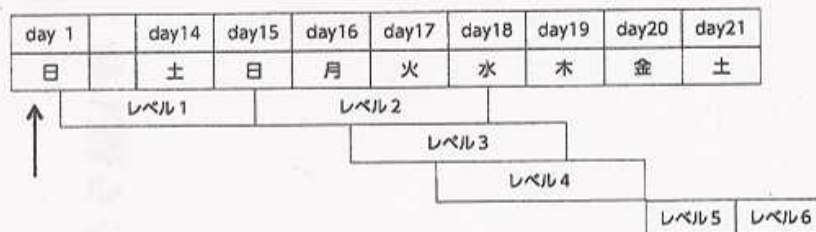 day 1 day14 day15 day16 day17 day18 day19 day20 day21
日 土 日 月 火 水 木 金 土
レベル1 レベル2
レベル3
レベル4
レベル5 レベル6